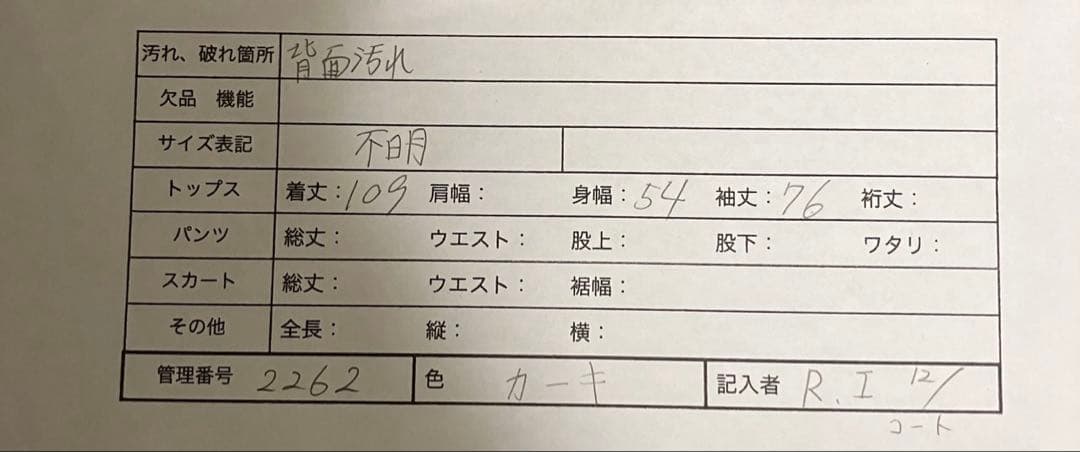 汚れ、破れ箇所 背面汚れ
欠品 機能
サイズ表記 不明
トップス 着丈：109 肩幅： 身幅：54 袖丈：76 裄丈：
パンツ 総丈： ウエスト： 股上： 股下： ワタリ：
スカート 総丈： ウエスト： 裾幅：
その他 全長： 縦： 横：
管理番号 2262 色 カーキ 記入者 R.I 12/
コート